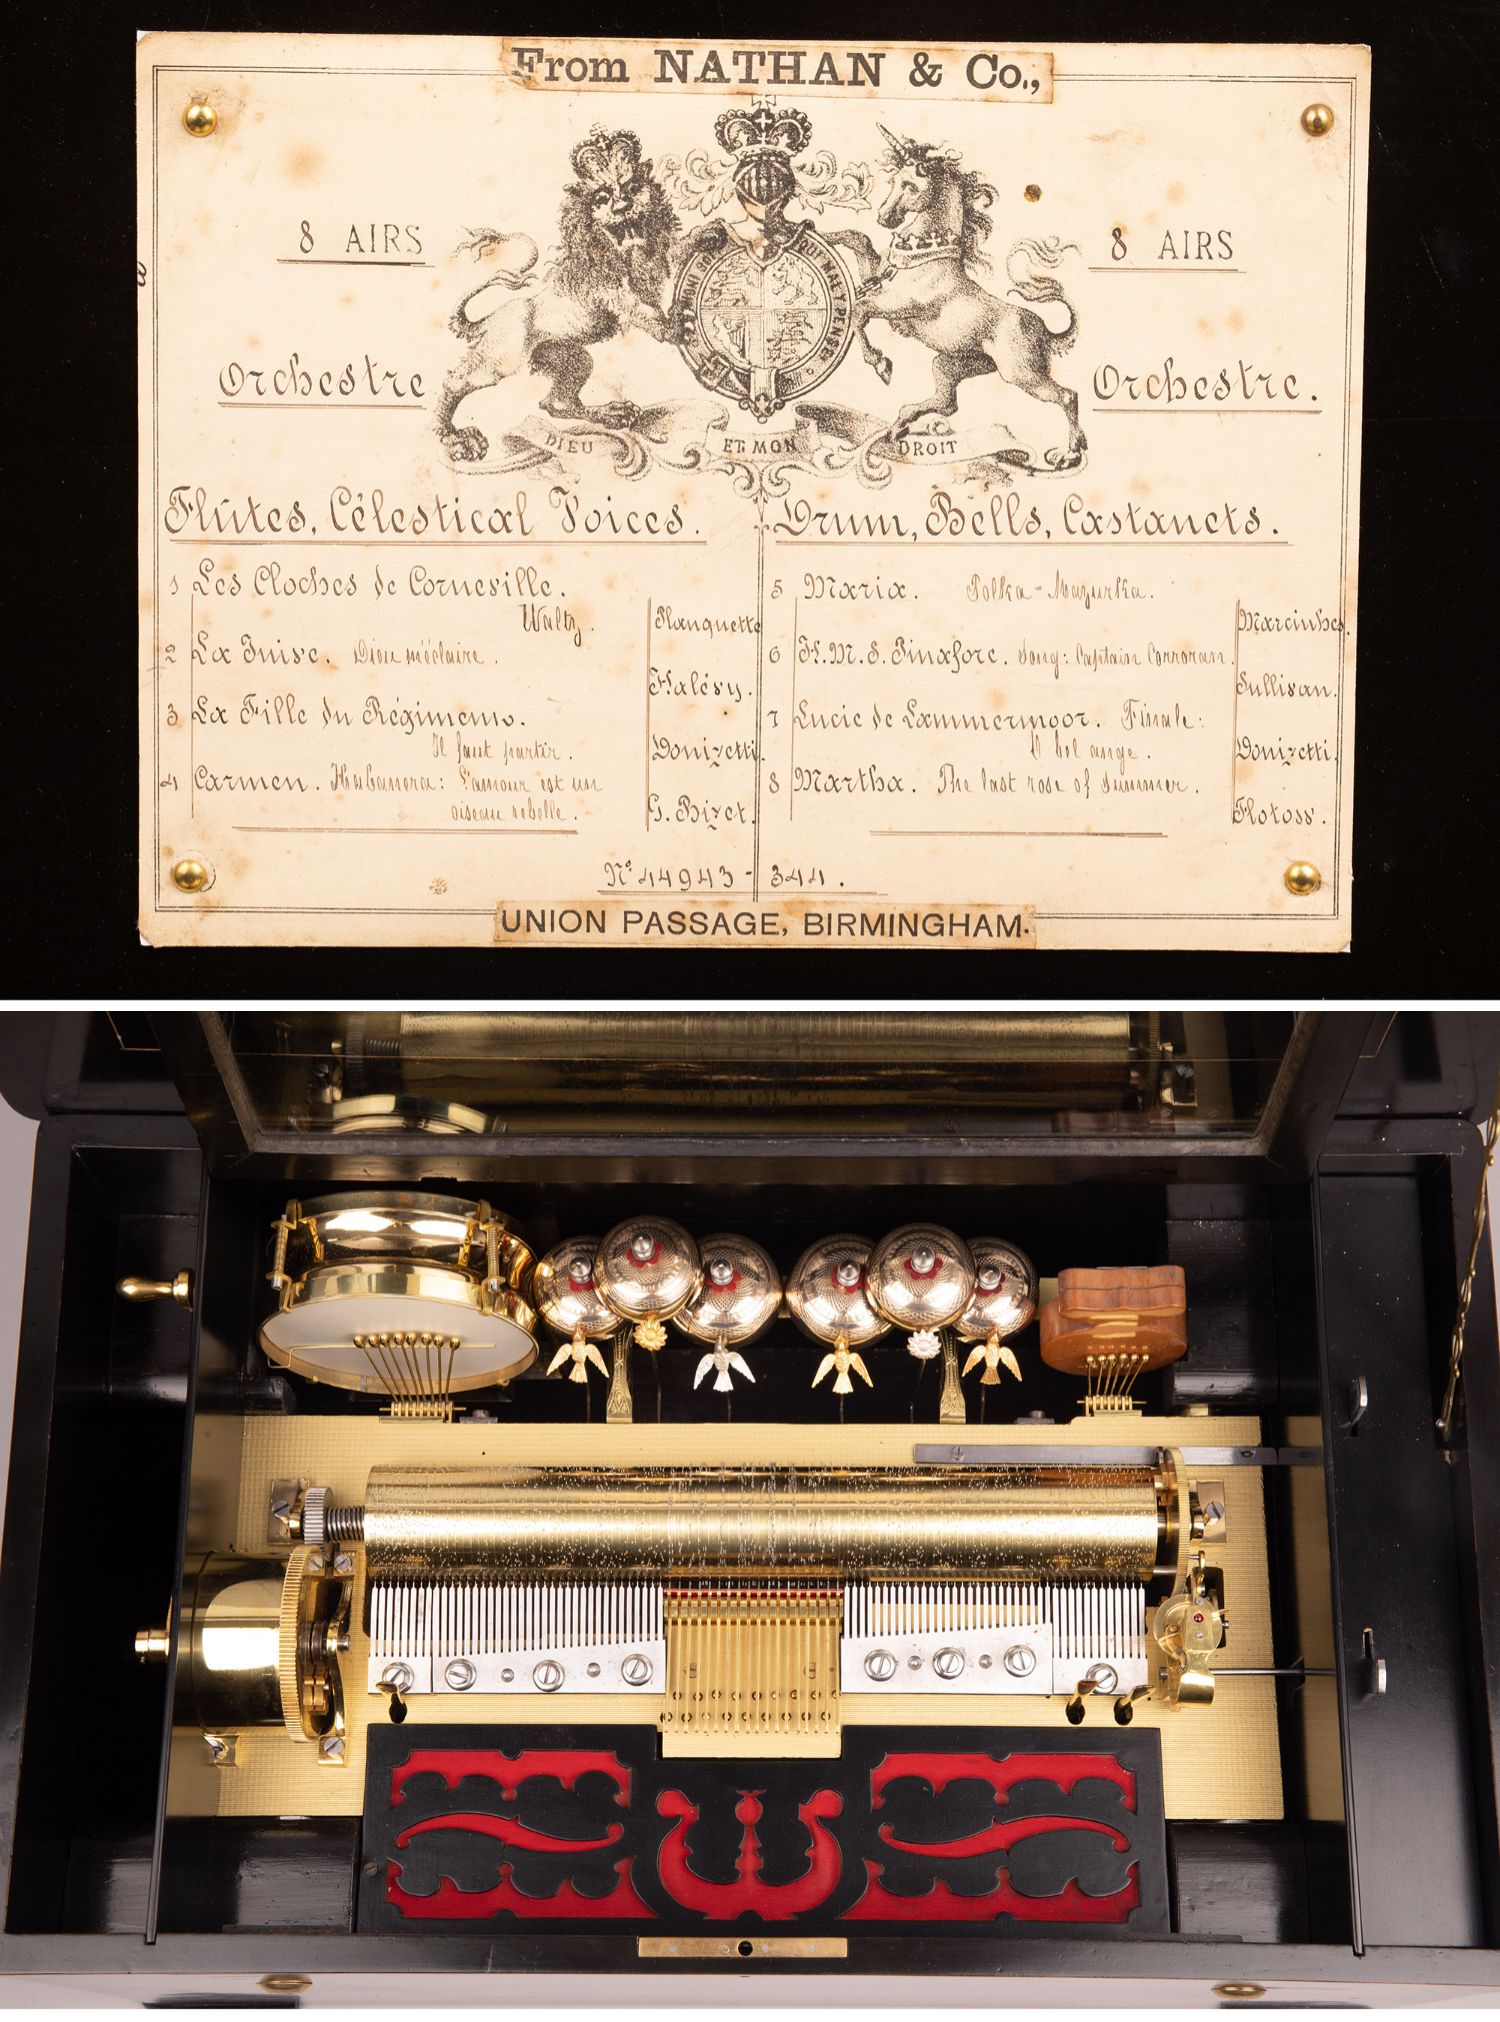 From NATHAN & Co.,
8 AIRS
8 AIRS
Orchestre
Orchestre.
HONI SOI QUI MAL Y PENSE
DIEU ET MON DROIT
Flûtes, Célestical Voices.
1 Les Cloches de Corneville.
Waltz.
Planquette
2 La Juive. Dieu m'éclaire.
Halévy.
3 La Fille du Régimens.
Il faut partir.
Donizetti.
4 Carmen. Habanera: L'amour est un
oiseau rebelle.
G. Bizet.
Drum, Bells, Castanets.
5 Maria. Polka-Mazurka.
6 H.M.S. Pinafore. Song: Captain Corroran.
Sullivan.
7 Lucie de Lammermoor. Finale:
O bel ange.
Donizetti.
8 Martha. The last rose of summer.
Flotow.
No. 44943 - 344.
UNION PASSAGE, BIRMINGHAM.